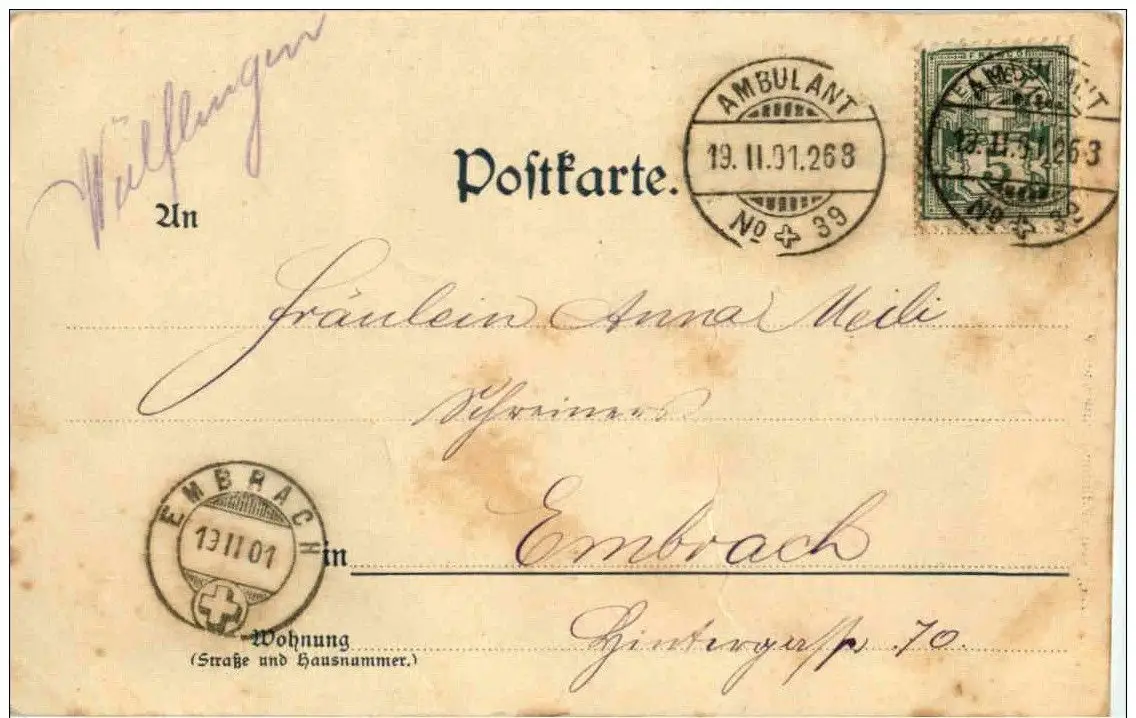 Wülflingen
Postkarte.
AMBULANT
19.II.01.268
No 39
FRANCO
5
AMBULANT
19.II.01.268
No 39
An
Fräulein Anna Meili
Schreiners
EMBRACH
19 II 01
in Embrach
Wohnung
(Straße und Hausnummer.)
Hintergass 70.